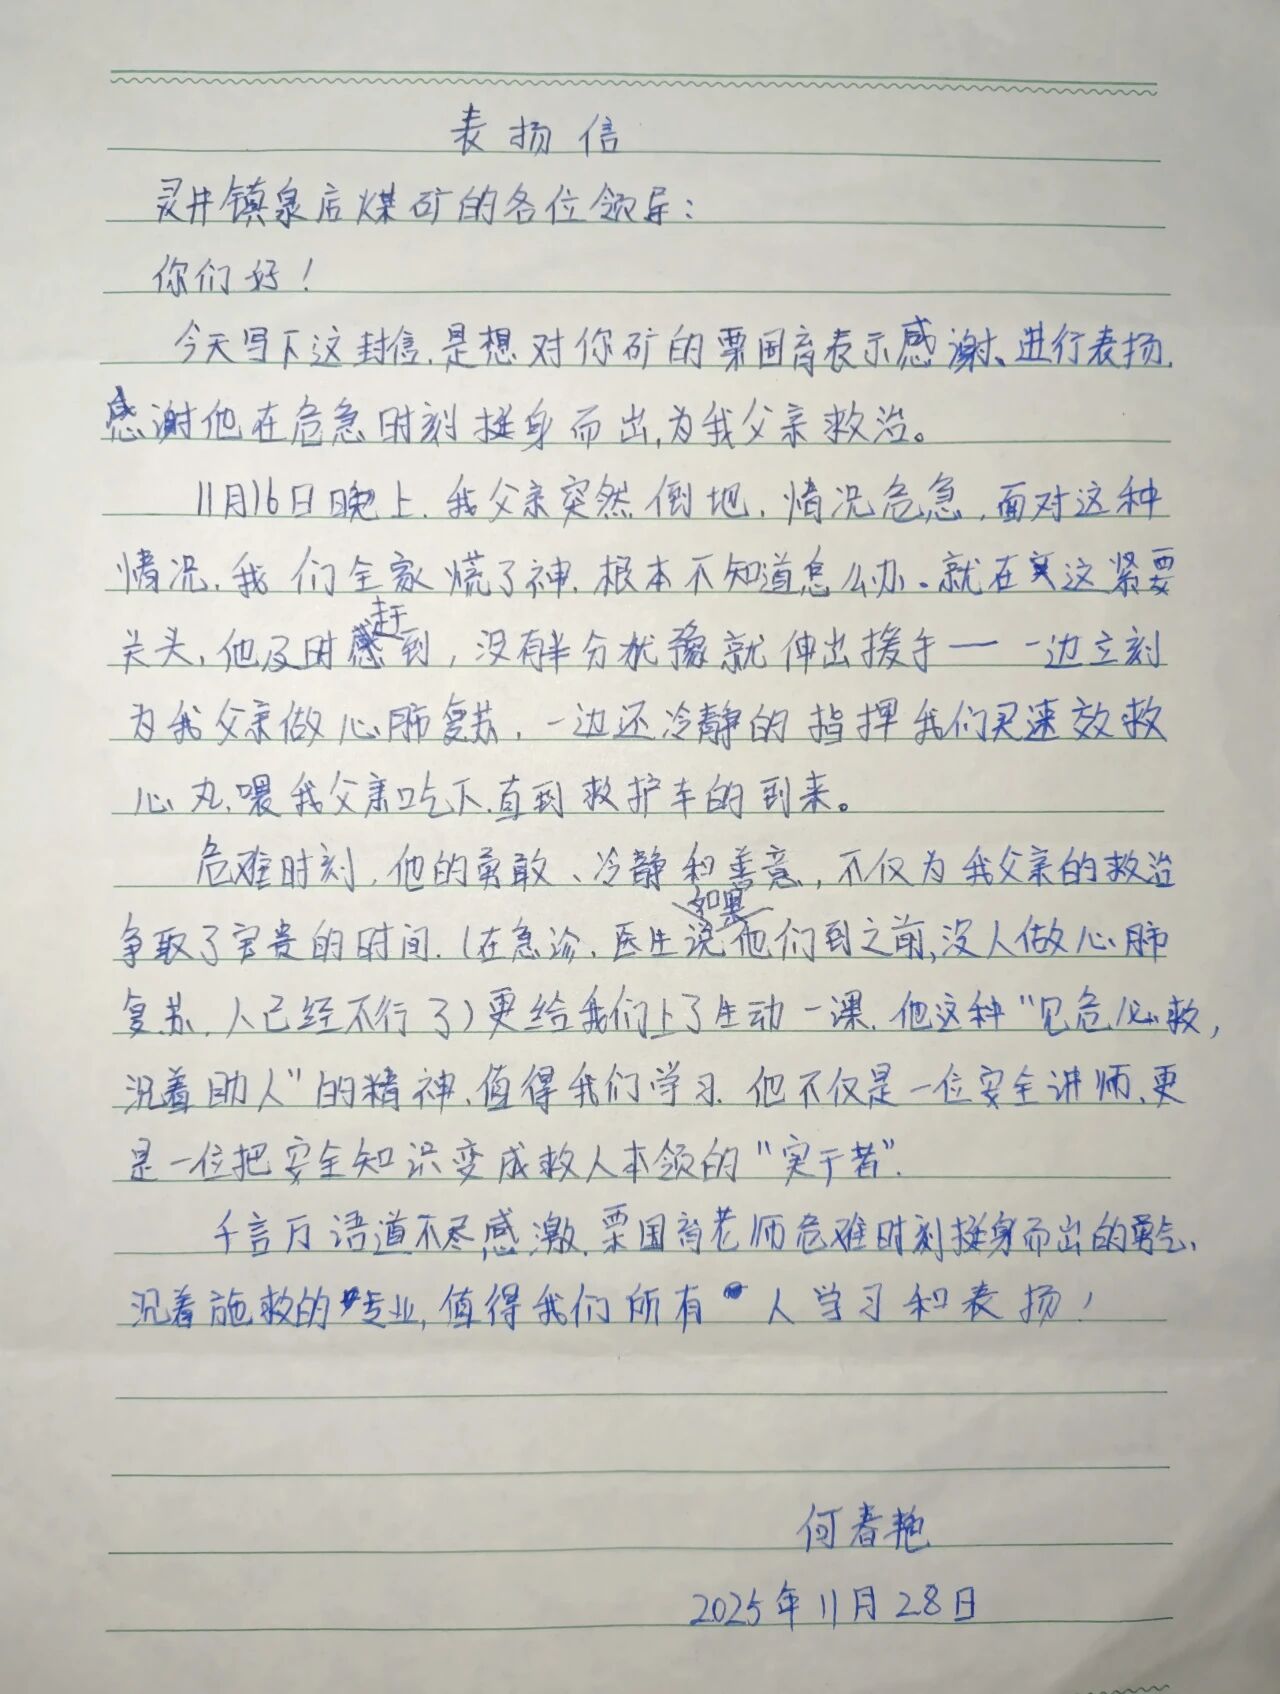 表扬信
灵井镇泉店煤矿的各位领导：
你们好！
今天写下这封信，是想对你矿的栗国育表示感谢、进行表扬，
感谢他在危急时刻挺身而出，为我父亲救治。
11月16日晚上，我父亲突然倒地，情况危急，面对这种
情况，我们全家慌了神，根本不知道怎么办。就在这紧要
关头，他及时赶到，没有半分犹豫就伸出援手——一边立刻
为我父亲做心肺复苏，一边还冷静的指挥我们灵速效救
心丸，喂我父亲吃下，直到救护车的到来。
危难时刻，他的勇敢、冷静和善意，不仅为我父亲的救治
争取了宝贵的时间，（在急诊，医生说如果他们到之前，没人做心肺
复苏，人已经不行了）更给我们上了生动一课，他这种“见危必救，
沉着助人”的精神，值得我们学习，他不仅是一位安全讲师，更
是一位把安全知识变成救人本领的“实干者”．
千言万语道不尽感激，栗国育老师危难时刻挺身而出的勇气、
沉着施救的专业，值得我们所有人学习和表扬！
何春艳
2025年11月28日